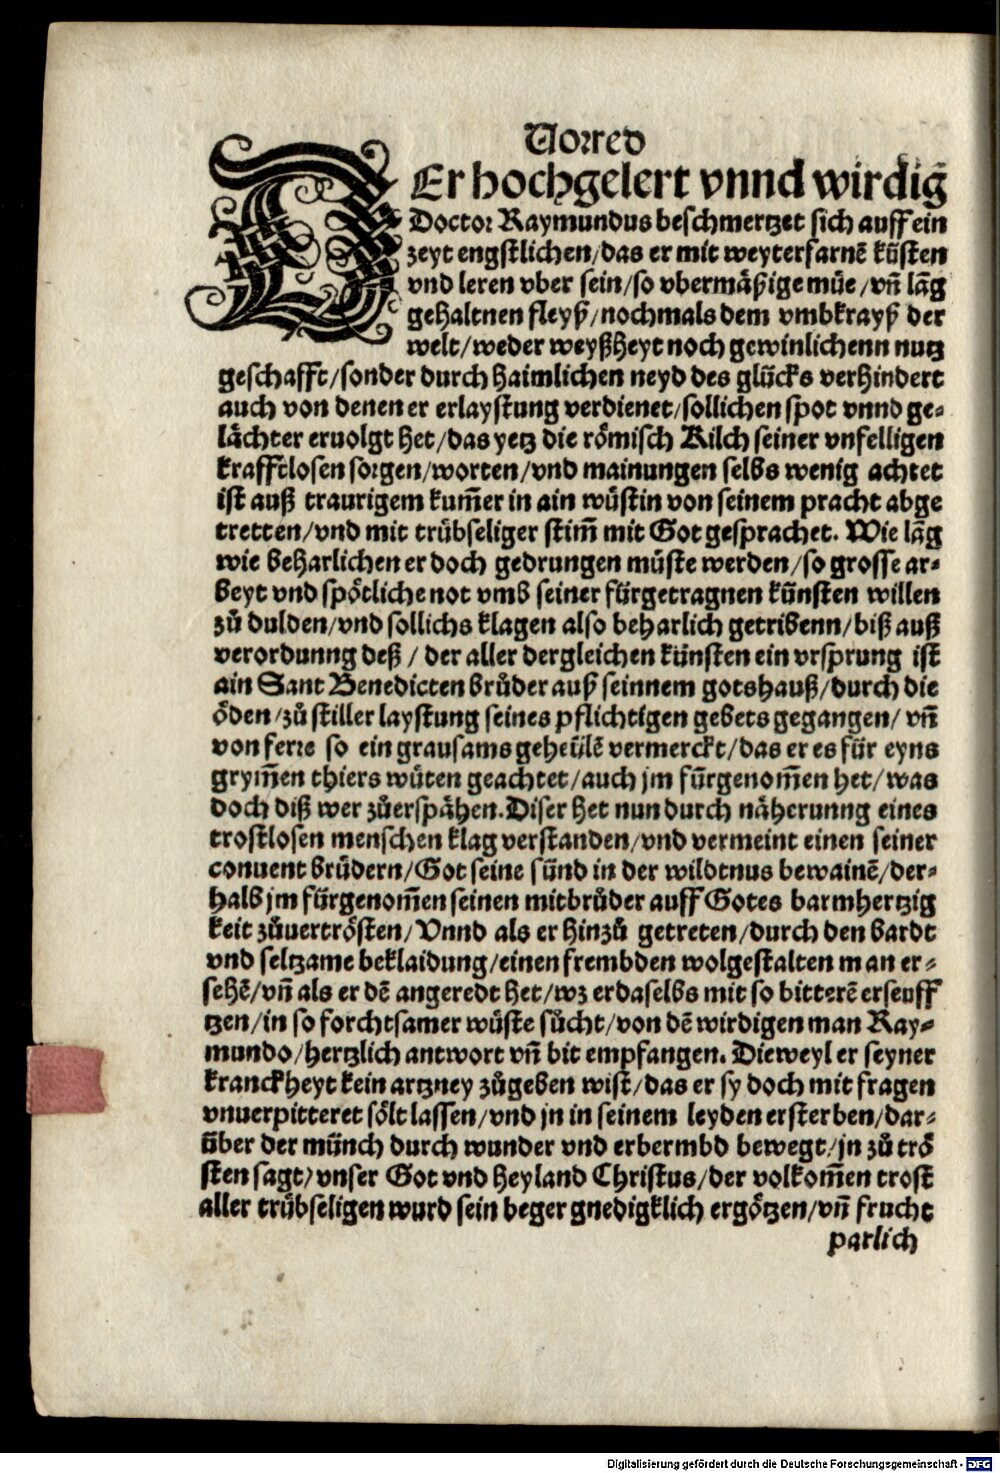 Vorred
DEr hochgelert vnnd wirdig̃
Doctor Raymundus beschmertzet sich auff ein
zeyt engstlichen/das er mit weyterfarnẽ kũsten
vnd leren vber sein/so vbermäßige müe/vñ lãg
gehaltnen fleyß/nochmals dem vmbkrayß der
welt/weder weyßheyt noch gewinlichenn nutz
geschafft/sonder durch haimlichen neyd des glücks verhindert
auch von denen er erlaystung verdienet/sollichen spot vnnd ge-
lächter eruolgt het/das yetz die römisch Kilch seiner vnfelligen
krafftlosen sorgen/worten/vnd mainungen selbs wenig achtet
ist auß traurigem kum̃er in ain wüstin von seinem pracht abge
tretten/vnd mit trübseliger stim̃ mit Got gesprachet. Wie lãg
wie beharlichen er doch gedrungen müste werden/so grosse ar-
beyt vnd spötliche not vmb seiner fürgetragnen künsten willen
zů dulden/vnd sollichs klagen also beharlich getribenn/biß auß
verordunng deß/der aller dergleichen künsten ein vrsprung ist
ain Sant Benedicten brůder auß seinnem gotshauß/durch die
öden/zů stiller laystung seines pflichtigen gebets gegangen/vñ
von ferre so ein grausams geheülẽ vermerckt/das er es für eyns
grym̃en thiers wüten geachtet/auch jm fürgenom̃en het/was
doch diß wer zůerspähen. Diser het nun durch näherunng eines
trostlosen menschen klag verstanden/vnd vermeint einen seiner
conuent brüdern/Got seine sünd in der wildtnus bewainẽ/der-
halb jm fürgenom̃en seinen mitbrůder auff Gotes barmhertzig
keit zůuertrösten/Vnnd als er hinzů getreten/durch den bardt
vnd seltzame beklaidung/einen frembden wolgestalten man er-
sehẽ/vñ als er dẽ angeredt het/wz er daselbs mit so bitterẽ erseuff
tzen/in so forchtsamer wüste sůcht/von dẽ wirdigen man Ray-
mundo/hertzlich antwort vñ bit empfangen. Dieweyl er seyner
kranckheyt kein artzney zůgeben wist/das er sy doch mit fragen
vnuerpitteret sölt lassen/vnd jn in seinem leyden ersterben/dar-
über der münch durch wunder vnd erbermbd bewegt/jn zů trö
sten sagt/vnser Got vnd heyland Christus/der volkom̃en trost
aller trübseligen wurd sein beger gnedigklich ergötzen/vñ frucht
parlich
Digitalisierung gefördert durch die Deutsche Forschungsgemeinschaft - DFG